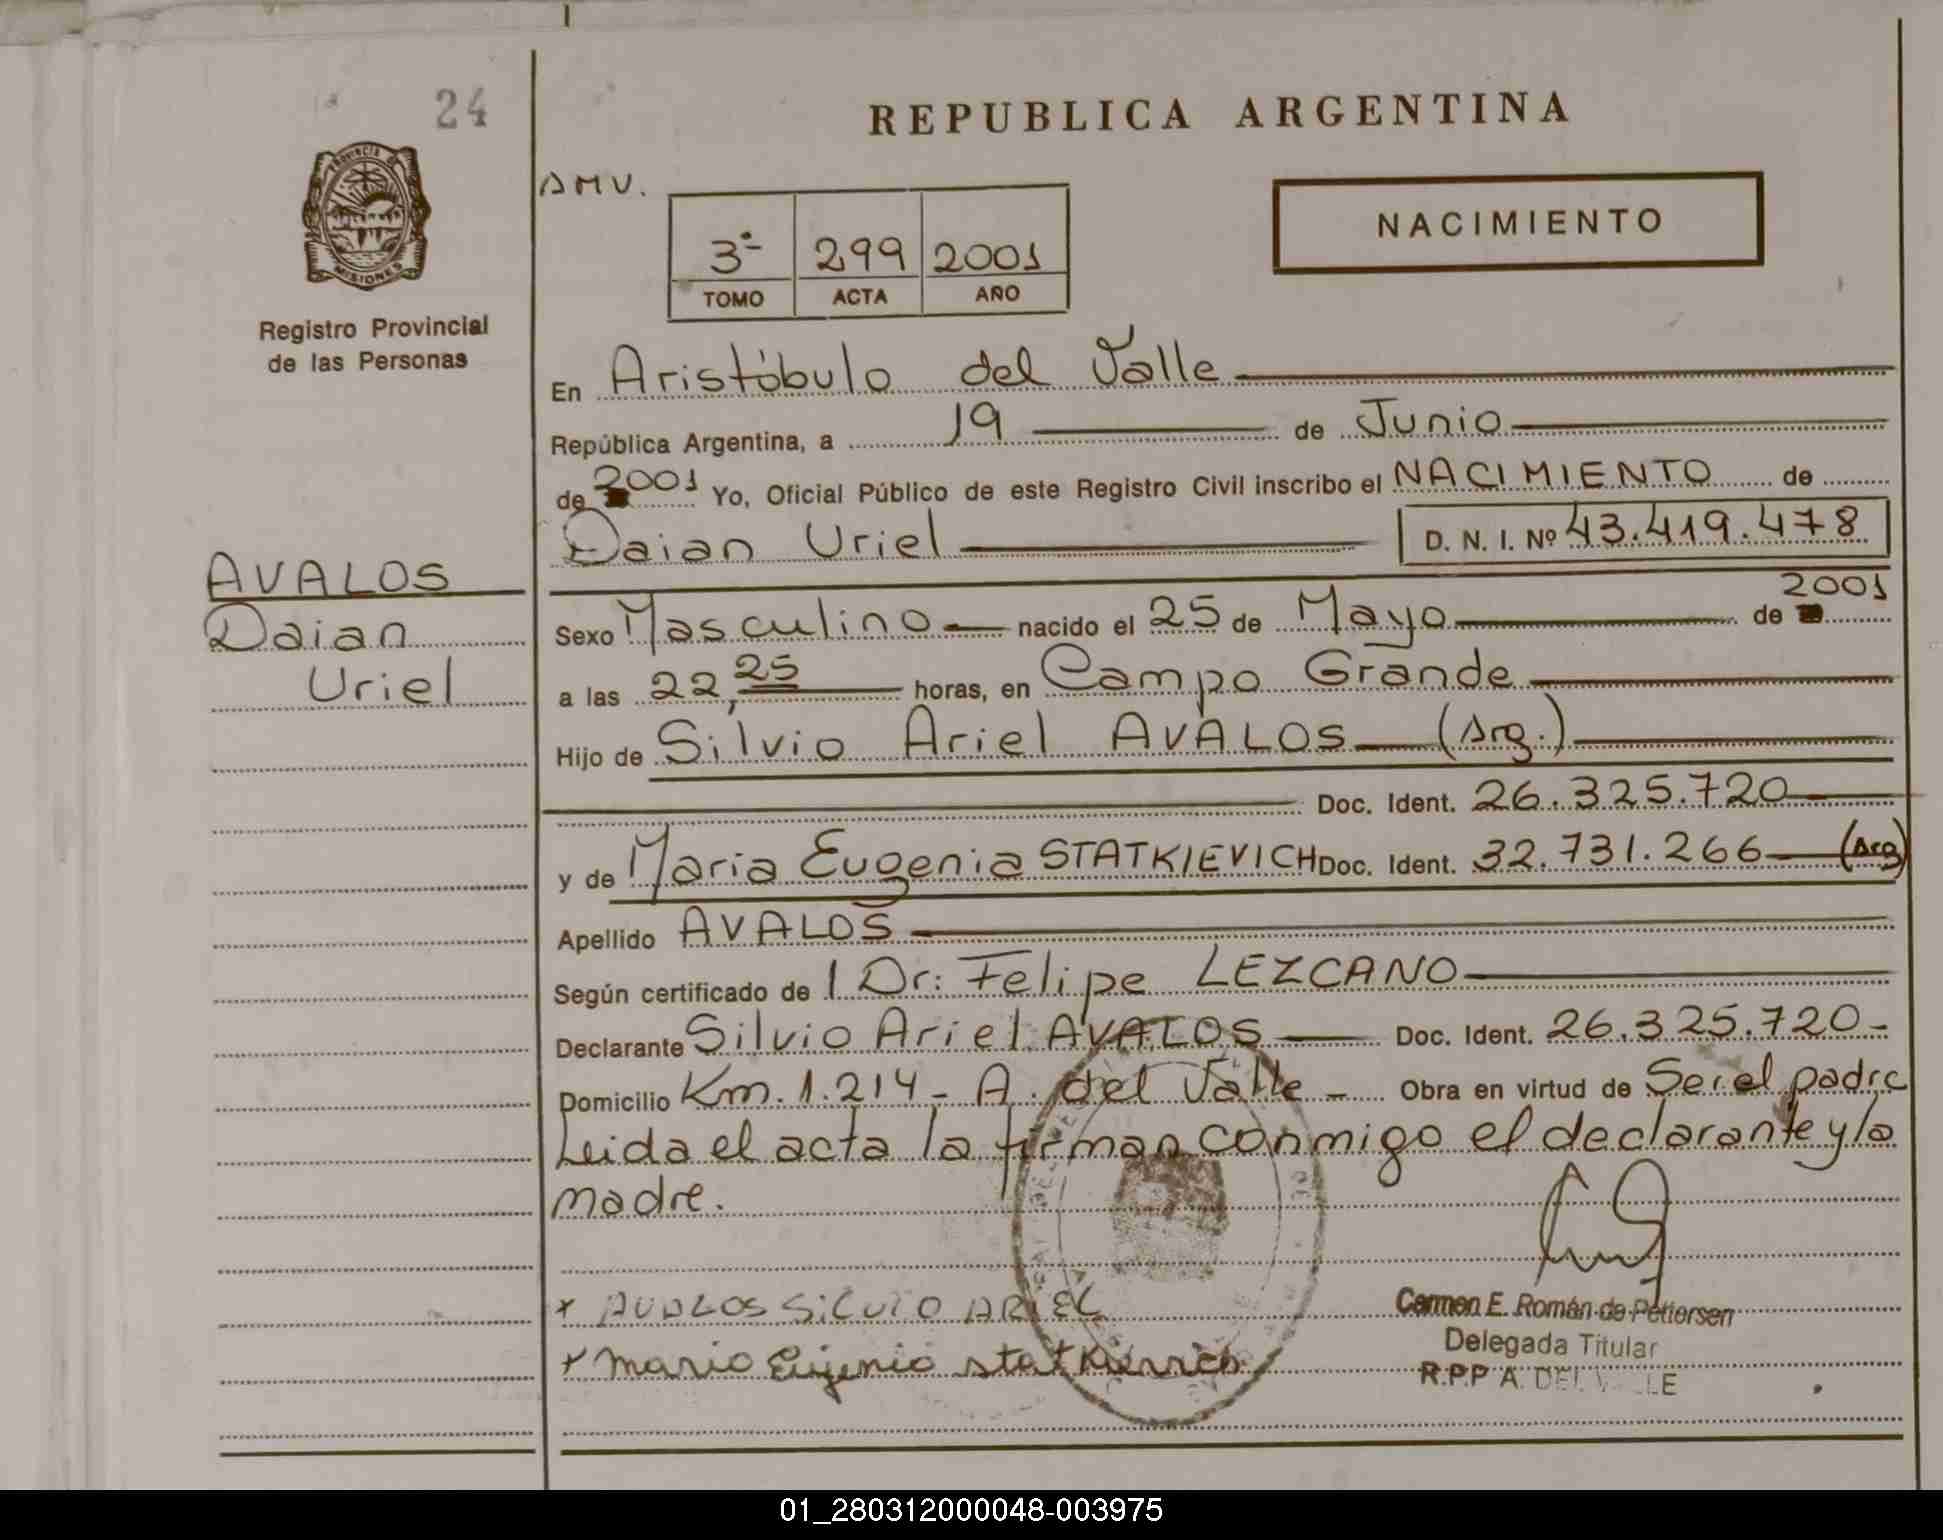 24
PROVINCIA DE
MISIONES
Registro Provincial
de las Personas
AVALOS
Daian
Uriel
REPUBLICA ARGENTINA
AMV.
3ª 299 2001
TOMO ACTA AÑO
NACIMIENTO
En Aristóbulo del Valle
República Argentina, a 19 de Junio
de 2001 Yo, Oficial Público de este Registro Civil inscribo el NACIMIENTO de
Daian Uriel D. N. I. Nº 43.419.478
Sexo Masculino nacido el 25 de Mayo de 2001
a las 22,25 horas, en Campo Grande
Hijo de Silvio Ariel AVALOS (Arg.)
Doc. Ident. 26.325.720
y de Maria Eugenia STATKIEVICH Doc. Ident. 32.731.266 (Arg)
Apellido AVALOS
Según certificado de l Dr: Felipe LEZCANO
Declarante Silvio Ariel AVALOS Doc. Ident. 26.325.720-
Domicilio Km. 1.214 - A. del Valle - Obra en virtud de Ser el padre
Leida el acta la firman conmigo el declarante y la
madre.
x AVALOS SILVIO ARIEL
x Maria Eugenia
Carmen E. Román de Petiersen
Delegada Titular
R.P.P A. DEL VALLE
01_280312000048-003975